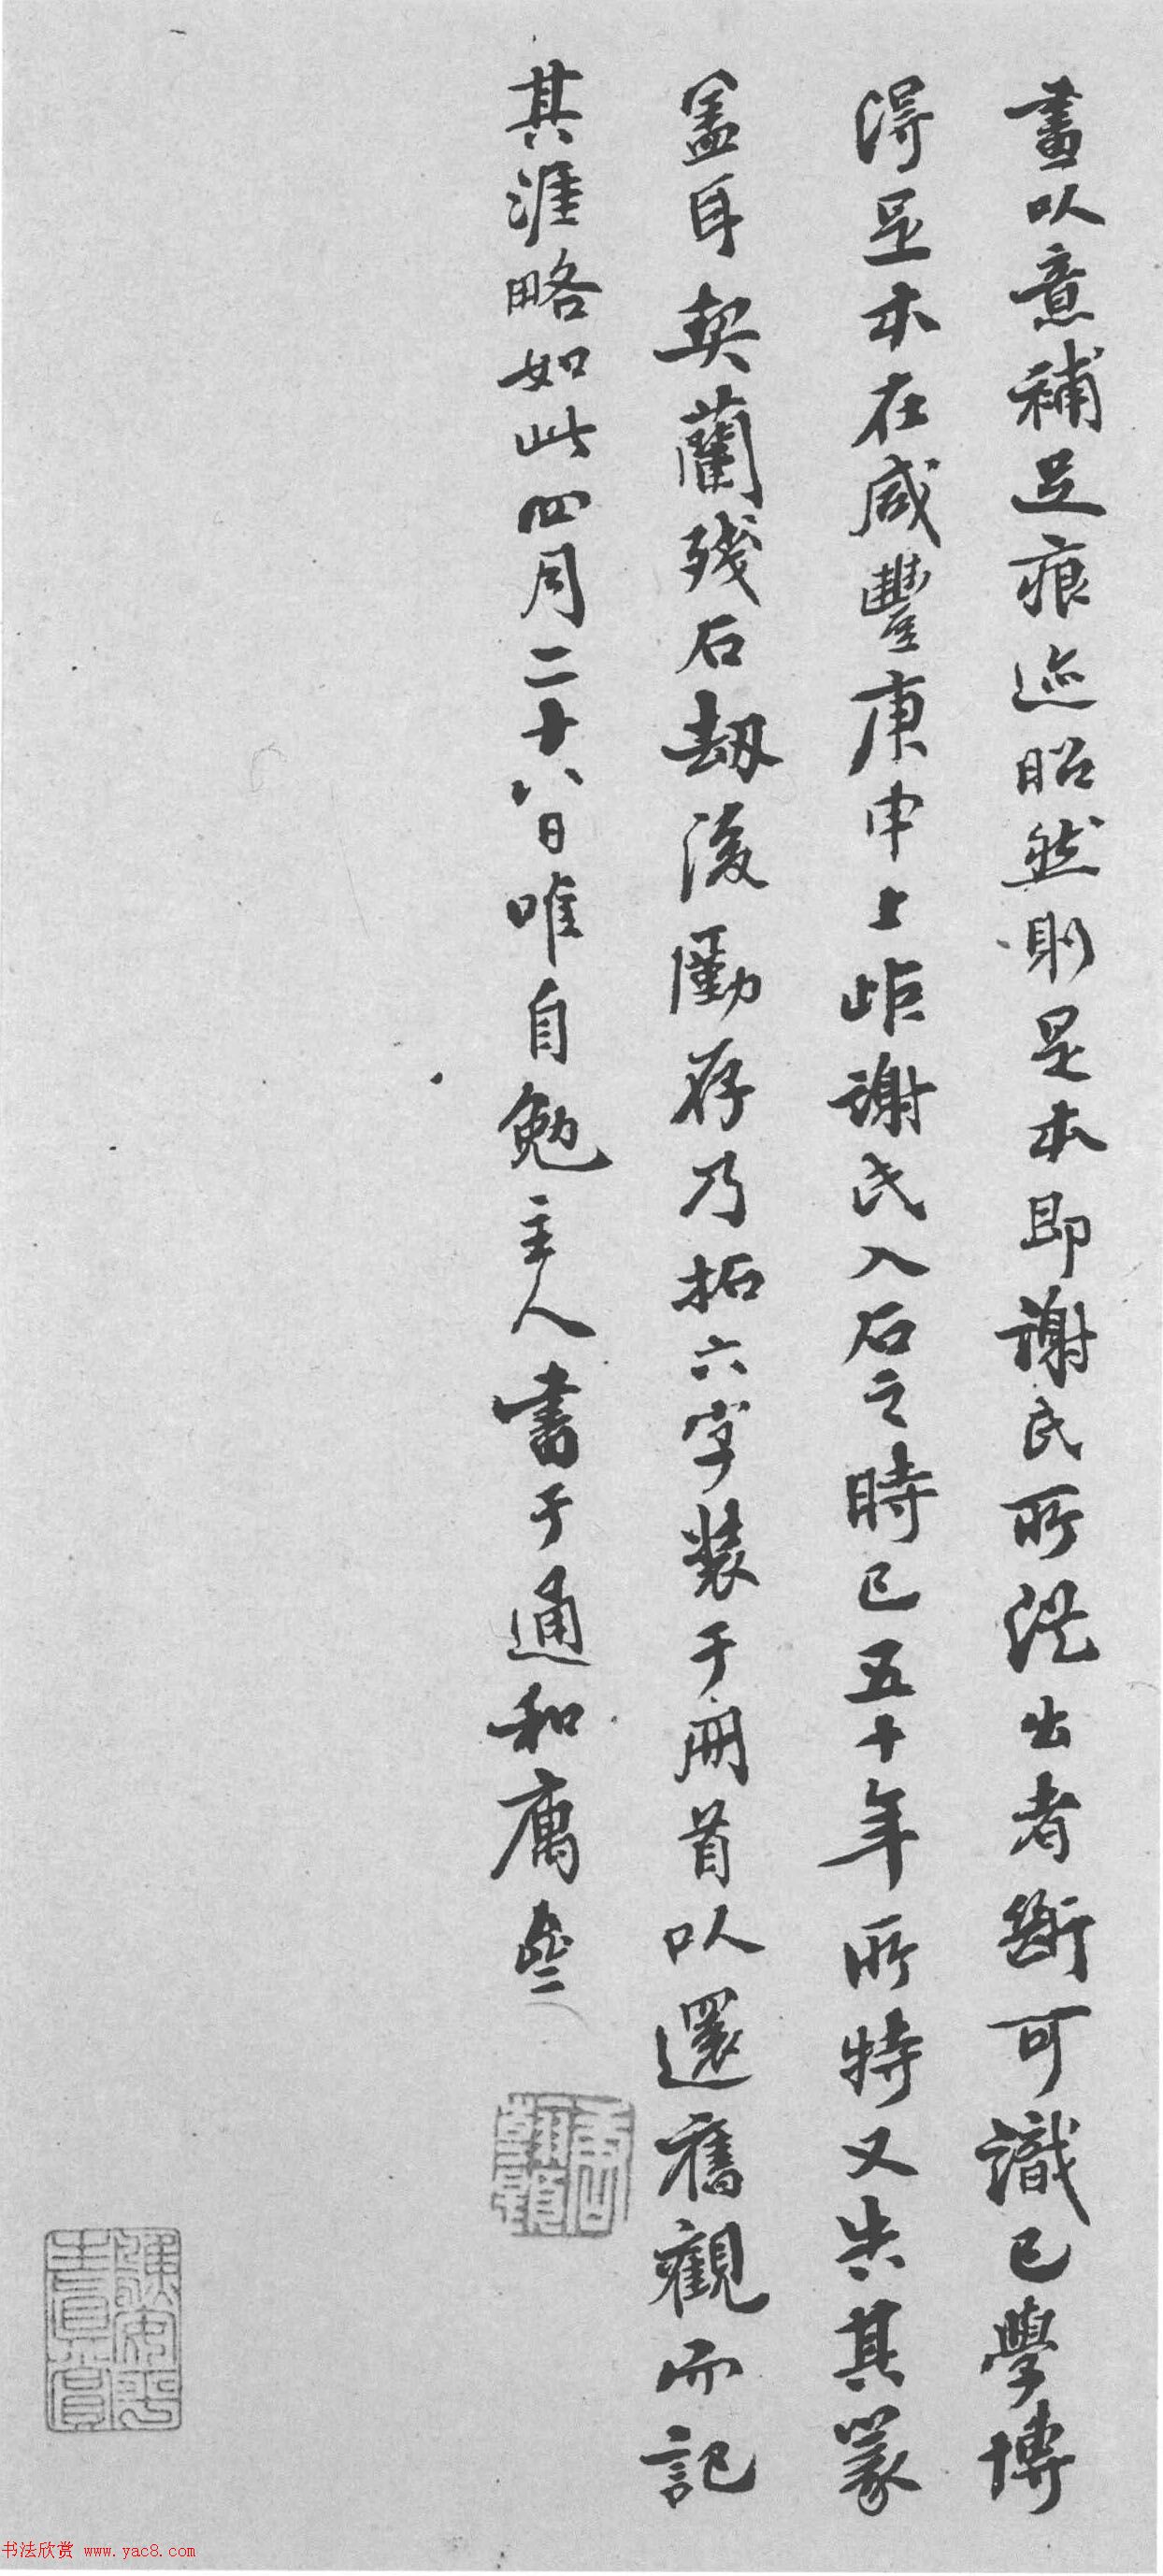 畫以意補足痕迹昭然則是本即謝氏所從出者斷可識已學博
得是本在咸豐庚申上距謝氏入石之時已五十年所特又失其篆
蓋耳契蘭殘石劫後勵存乃拓六字裝于冊首以還舊觀而記
其涯略如此四月二十八日唯自勉主人書于通和
書法欣賞 www.yac8.com